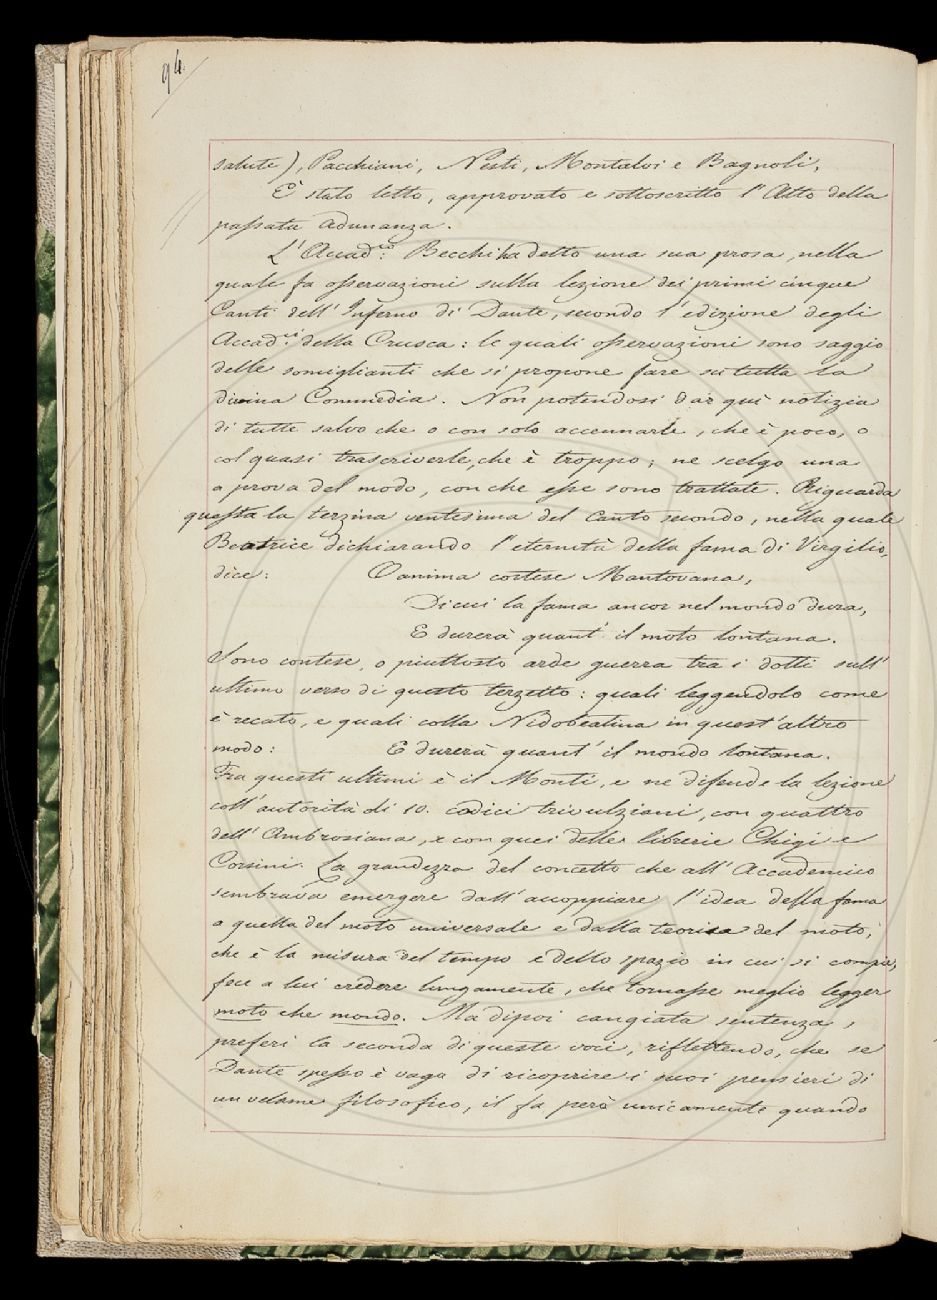 94.
salute), Pacchiani, Nesti, Montalvi e Bagnoli.
È stato letto, approvato e sottoscritto l'Atto della
passata adunanza.
L'Accad.co: Becchi ha detto una sua prosa, nella
quale fa osservazioni sulla lezione dei primi cinque
Canti dell'Inferno di Dante, secondo l'edizione degli
Accad.ci: della Crusca: le quali osservazioni sono saggio
delle somiglianti che si propone fare su tutta la
divina Commedia. Non potendosi dar quì notizia
di tutte salvo che o con solo accennarle, che è poco, o
col quasi trascriverle, che è troppo; ne scelgo una
a prova del modo, con che esse sono trattate. Riguarda
questa la terzina ventesima del Canto secondo, nella quale
Beatrice dichiarando l'eternità della fama di Virgilio,
dice: O anima cortese Mantovana,
Di cui la fama ancor nel mondo dura,
E durerà quant' il moto lontana.
Sono contese, o piuttosto arde guerra tra i dotti sull'
ultimo verso di questo terzetto: quali leggendolo come
è recato, e quali colla Nidobeatina in quest'altro
modo: E durerà quant' il mondo lontana.
Fra questi ultimi è il Monti, e ne difende la lezione
coll'autorità di 10. codici trivulziani, con quattro
dell'Ambrosiana, e con quei delle librerie Chigi e
Corsini. La grandezza del concetto che all'Accademico
sembrava emergere dall'accoppiare l'idea della fama
a quella del moto universale e dalla teorica del moto,
che è la misura del tempo e dello spazio in cui si compie,
fece a lui credere lungamente, che tornasse meglio legger
moto che mondo. Ma dipoi cangiata sentenza,
preferì la seconda di queste voci, riflettendo, che se
Dante spesso è vago di ricoprire i suoi pensieri di
un velame filosofico, il fa però unicamente quando